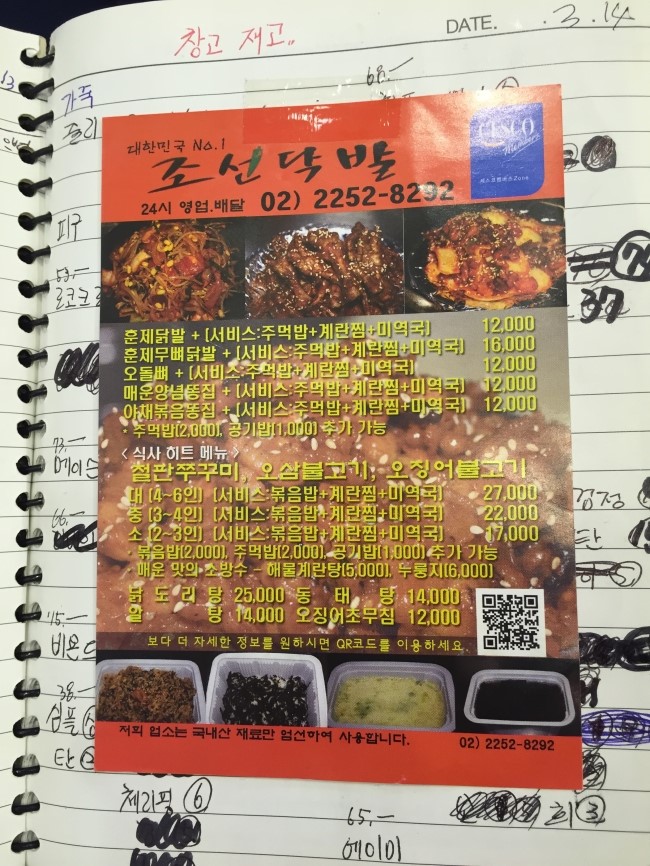 창고 재고..
DATE. . 3. 14
13
가죽
68.-
대한민국 No.1
조선닭발
CESCO
Members
세스코멤버스Zone
24시 영업.배달 02) 2252-8292
피구
53.-
로코코
37
훈제닭발 + (서비스:주먹밥+계란찜+미역국) 12,000
훈제무뼈닭발 + (서비스:주먹밥+계란찜+미역국) 16,000
오돌뼈 + (서비스:주먹밥+계란찜+미역국) 12,000
매운양념똥집 + (서비스:주먹밥+계란찜+미역국) 12,000
야채볶음똥집 + (서비스:주먹밥+계란찜+미역국) 12,000
· 주먹밥(2,000), 공기밥(1,000) 추가 가능
< 식사 히트 메뉴 >
철판쭈꾸미, 오삼불고기, 오징어불고기
73.-
메이
대 (4~6인) (서비스:볶음밥+계란찜+미역국) 27,000
검정
중 (3~4인) (서비스:볶음밥+계란찜+미역국) 22,000
66.-
소 (2~3인) (서비스:볶음밥+계란찜+미역국) 17,000
탄
· 볶음밥(2,000), 주먹밥(2,000), 공기밥(1,000) 추가 가능
· 매운 맛의 소방수 - 해물계란탕(5,000), 누룽지(6,000)
닭도리탕 25,000 동태탕 14,000
알탕 14,000 오징어조무침 12,000
15.-
비온
보다 더 자세한 정보를 원하시면 QR코드를 이용하세요
38.-
심플
저희 업소는 국내산 재료만 엄선하여 사용합니다. 02) 2252-8292
탄 ②
체리핑 ⑥
65.-
에이미
희 ③